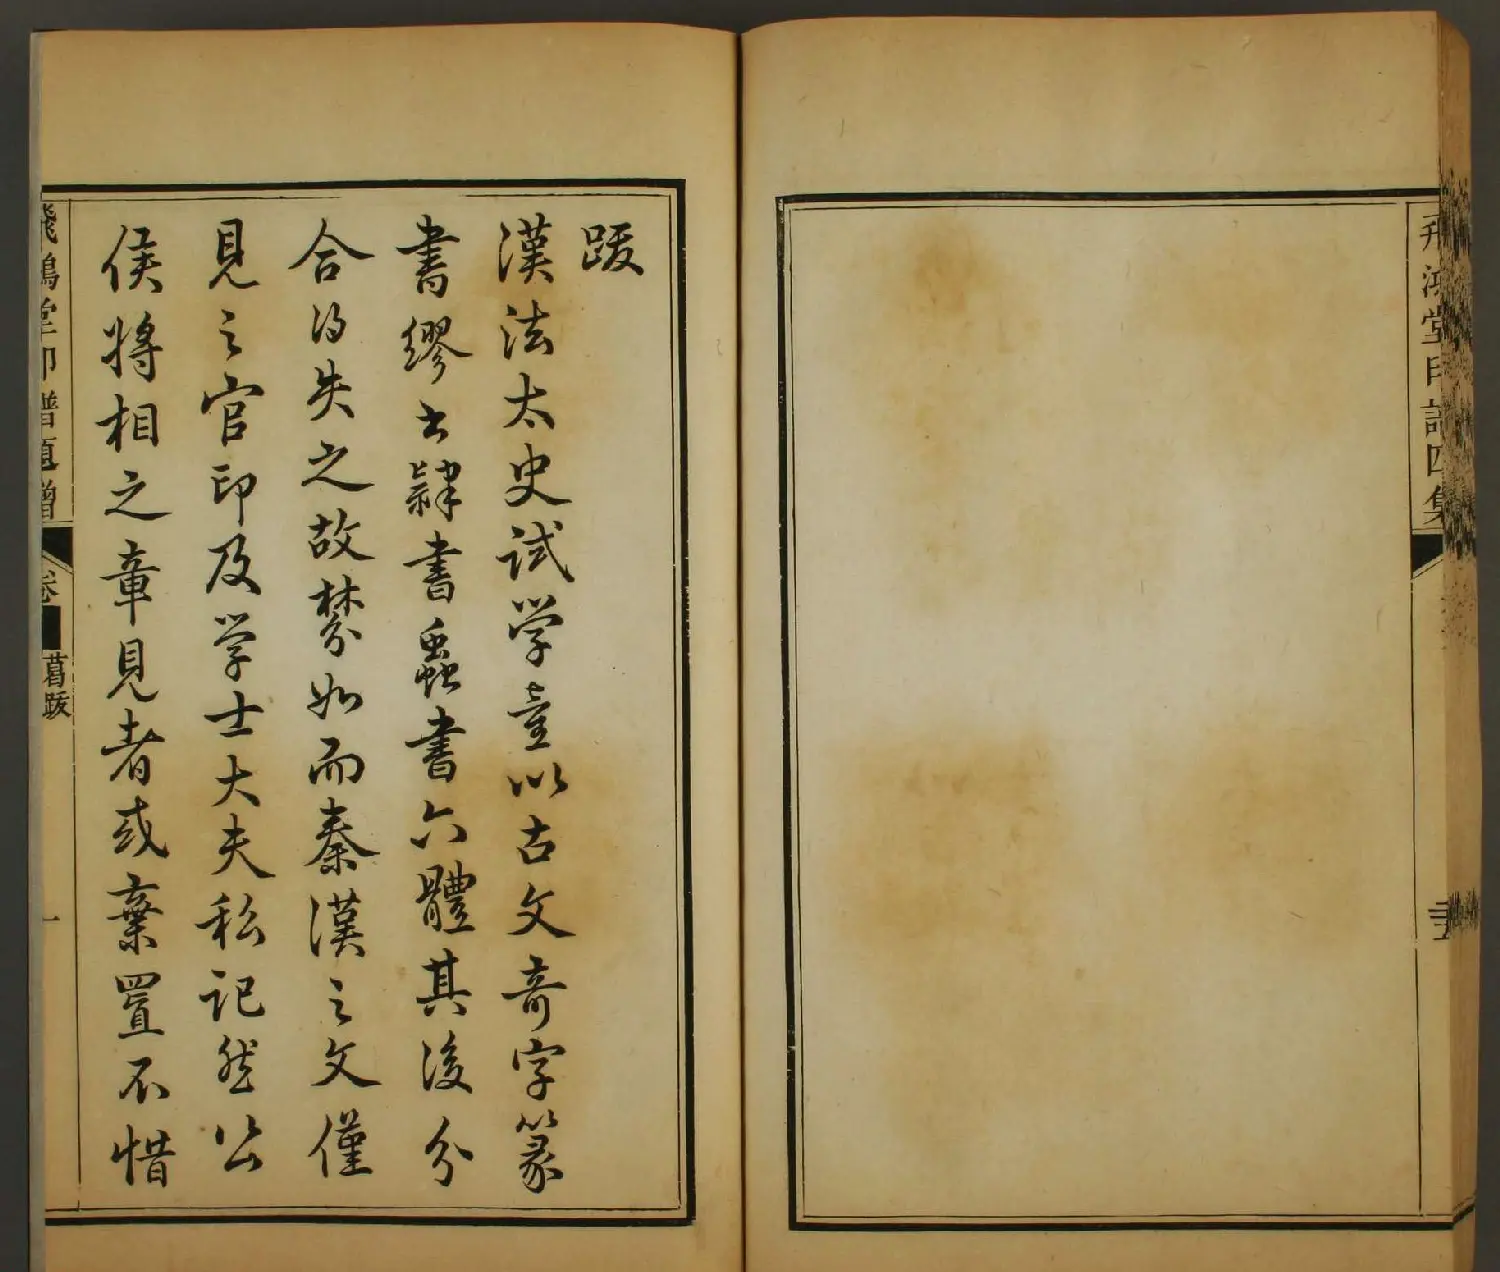 飛鴻堂印譜四集
跋
漢法太史試学童以古文奇字篆
書繆書隸書蟲書六體其後分
合得失之故棼如而秦漢之文僅
見之官印及学士大夫私記然公
侯將相之章見者或棄置不惜
飛鴻堂印譜題贈
卷
葛跋
一